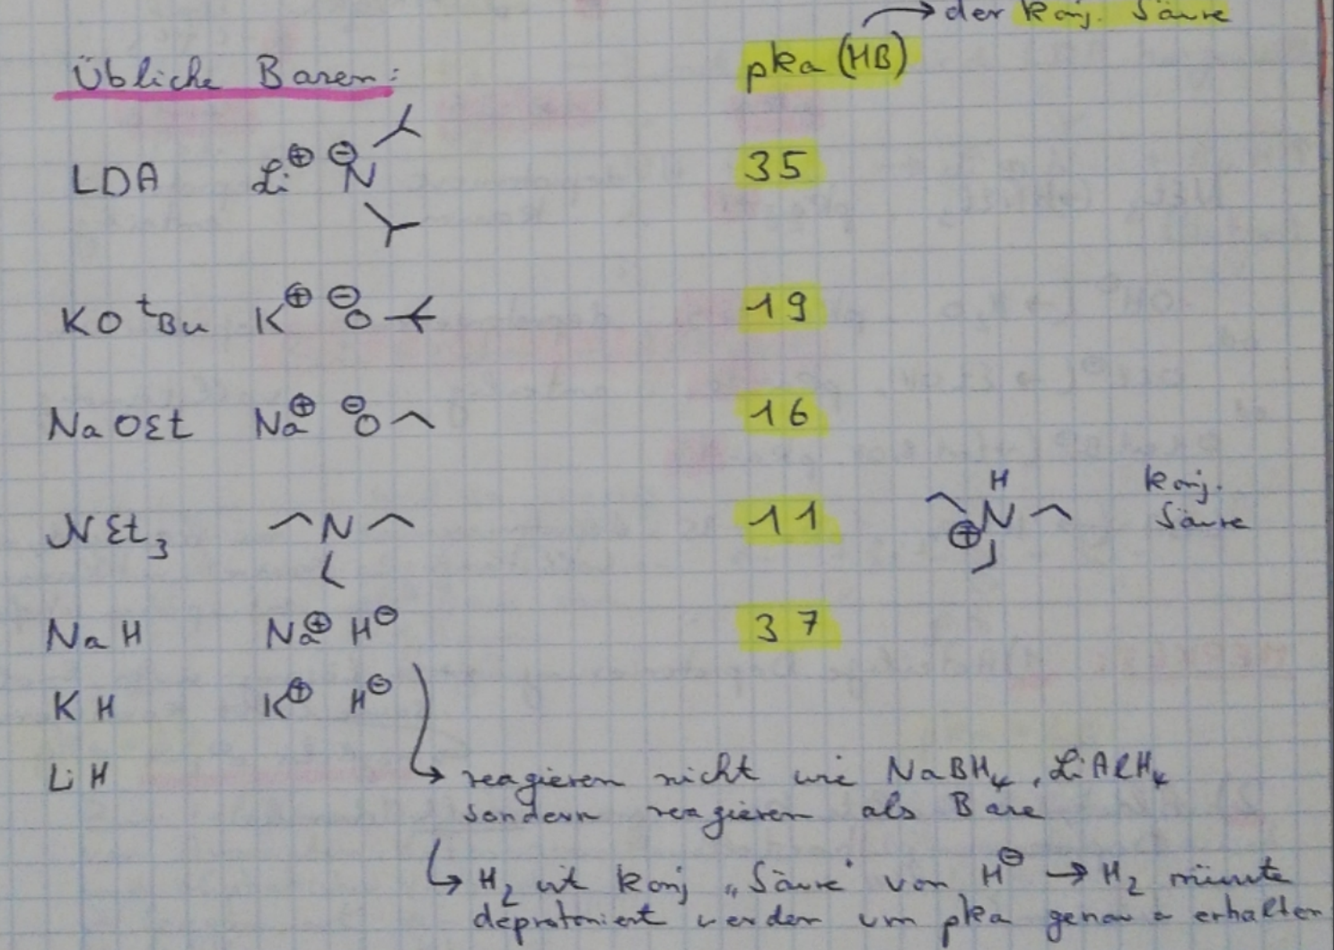 der konj. Säure
Übliche Basen: pka (HB)
LDA Li⊕ ⊖N 35
KO tBu K⊕ ⊖O 19
NaOEt Na⊕ ⊖O 16
NEt3 N 11 H ⊕N konj. Säure
NaH Na⊕ H⊖ 37
KH K⊕ H⊖
LiH → reagieren nicht wie NaBH4, LiAlH4
sondern reagieren als Base
↳ H2 ist konj „Säure" von H⊖ → H2 müsste
deprotoniert werden um pka genau a erhalten